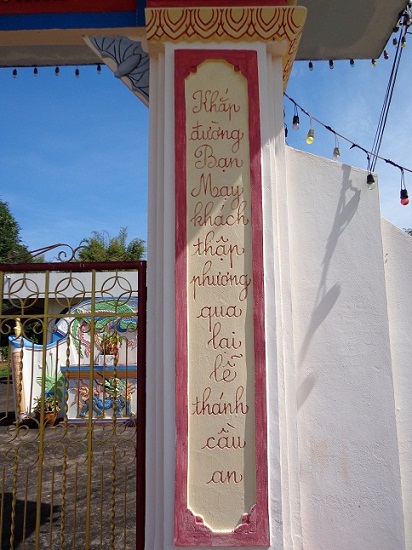 Khắp
đường
Bạn
May
khách
thập
phương
qua
lai
lễ
thánh
cầu
an